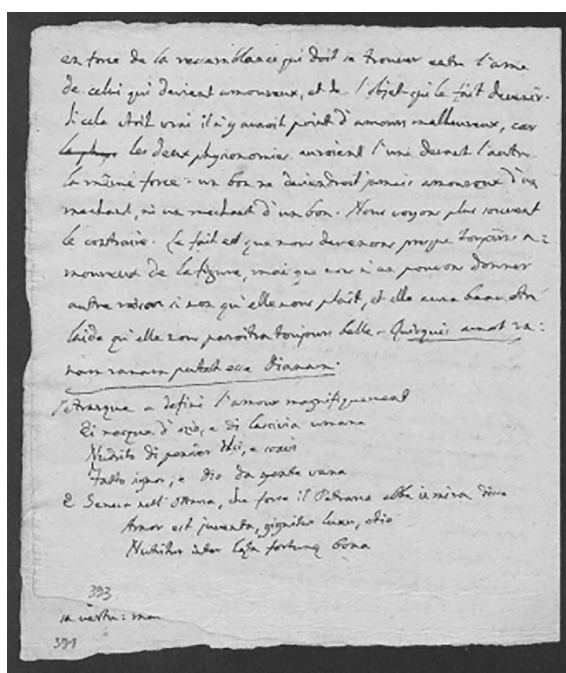 en force de la ressemblance qui doit se trouver entre l'ame
de celui qui devient amoureux, et de l'objet qui le fait devenir.
Si cela étoit vrai il n'y auroit point d'amours malheureux, car
les deux physionomies auroient l'une devant l'autre
la même force: un bon ne deviendroit jamais amoureux d'un
mechant, ni un mechant d'un bon. Nous voyons plus souvent
le contraire. Le fait est que nous devenons presque toujours a=
moureux de la figure, mais que nous n'en pouvons donner
autre raison si non qu'elle nous plait, et elle aura beau être
laide qu'elle nous paroitra toujours belle. Quisquis amat ra=
nam ranam putat esse Dianam.
Petrarque a defini l'amour magnifiquement
Ei nacque d'ozio, e di lascivia umana
Nudrito di pensier dolci, e soavi
Fatto signor, e dio da gente vana
E Seneca nell'Ottavia, che forse il Petrarca ebbe in mira disse
Amor est juventa, gignitur luxu, otio
Nutritur inter laeta fortunae bona
393
391